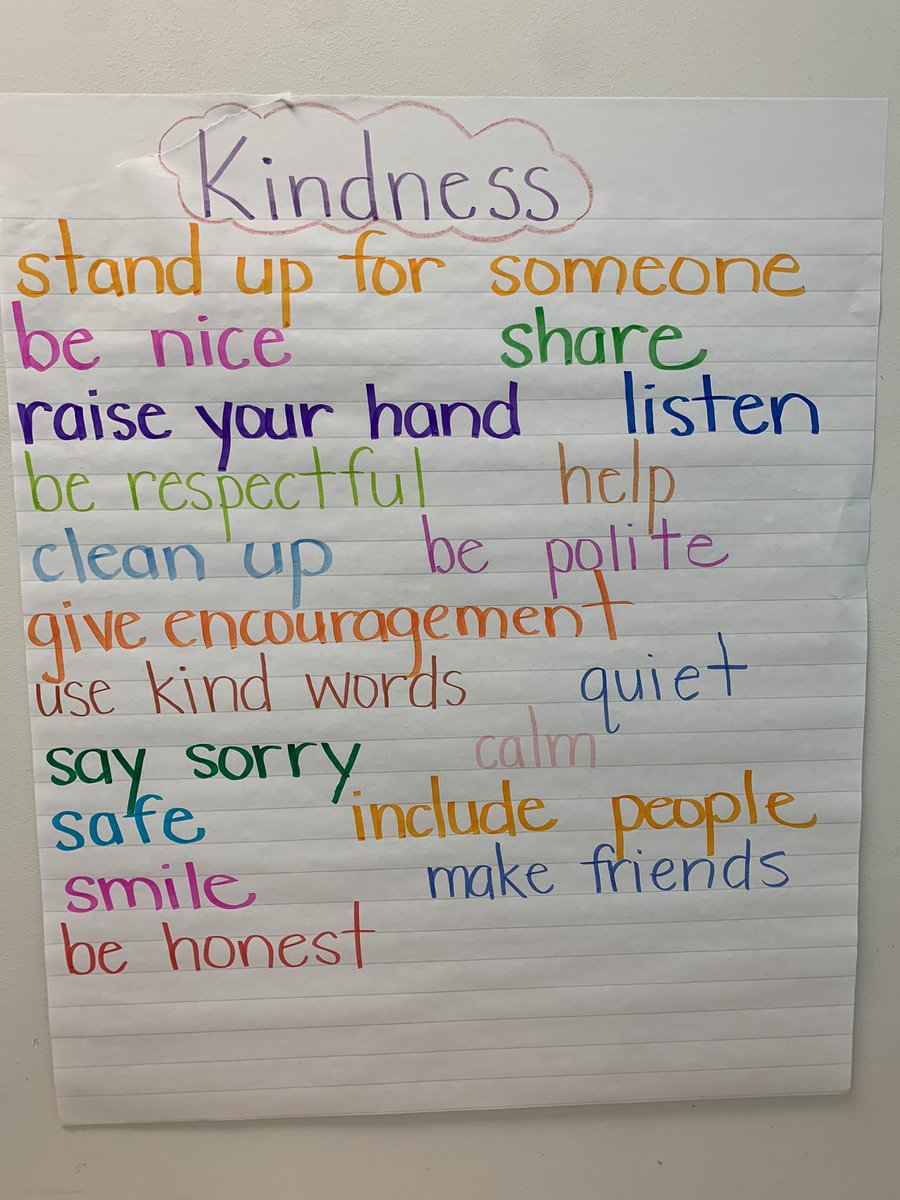 Kindness
stand up for someone
be nice share
raise your hand listen
be respectful help
clean up be polite
give encouragement
use kind words quiet
say sorry calm
safe include people
smile make friends
be honest